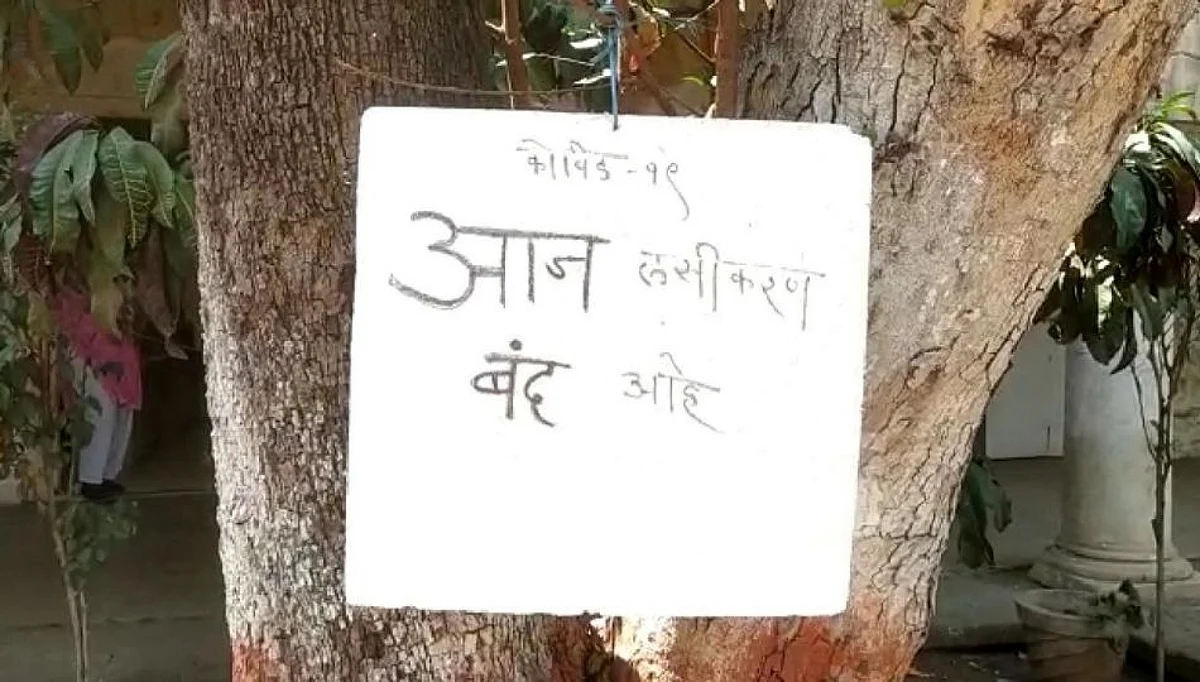 कोविड - १९
आज लसीकरण
बंद आहे